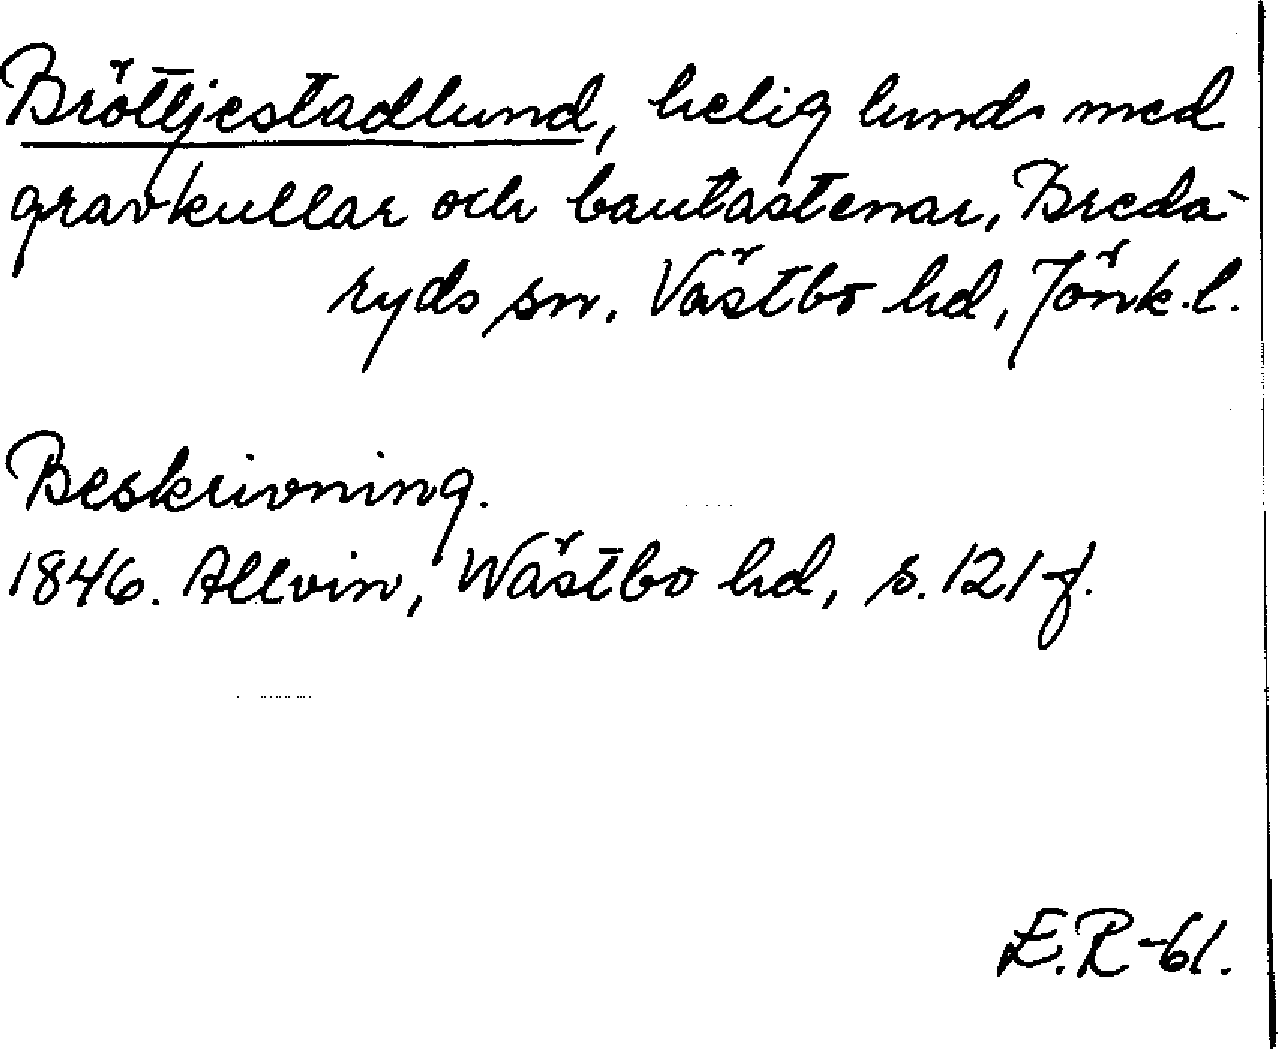 Bröttjestadlund, helig lund med
gravkullar och bautastenar, Breda-
ryds sn. Västbo hd, Jönk.l.
Beskrivning.
1846. Allvin, Wästbo hd, s. 121 f.
E.R-61.